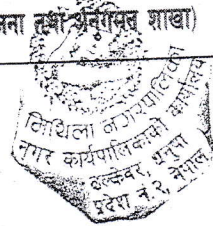 ना तथा अनुगमन शाखा)
मिथिला नगरपालिका
नगर कार्यपालिकाको कार्यालय
ढल्केवर, धनुषा
प्रदेश नं. २, नेपाल